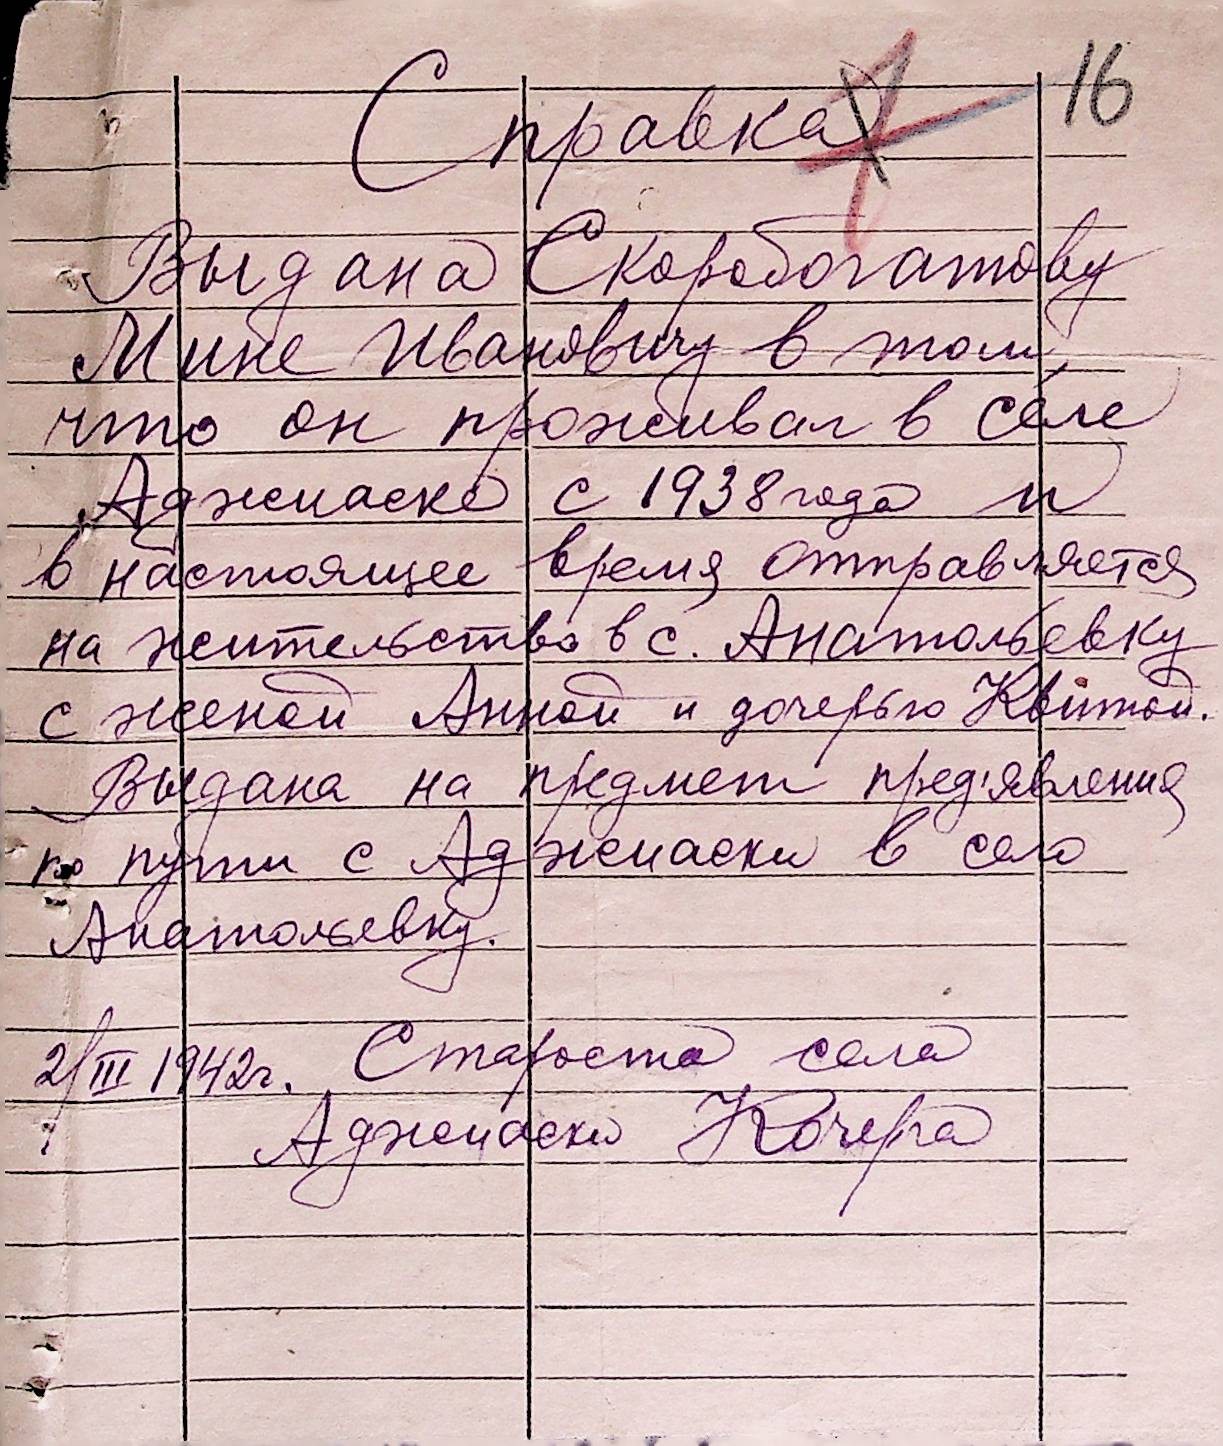 16
Справка
Выдана Скоробогатову
Мине Ивановичу в том,
что он проживал в селе
Аджиаске с 1938 года и
в настоящее время отправляется
на жительство в с. Анатольевку
с женой Анной и дочерью Квитой.
Выдана на предмет пред'явления
по пути с Аджиаски в село
Анатольевку.
2/III 1942г. Староста села
Аджиаски Кочерга